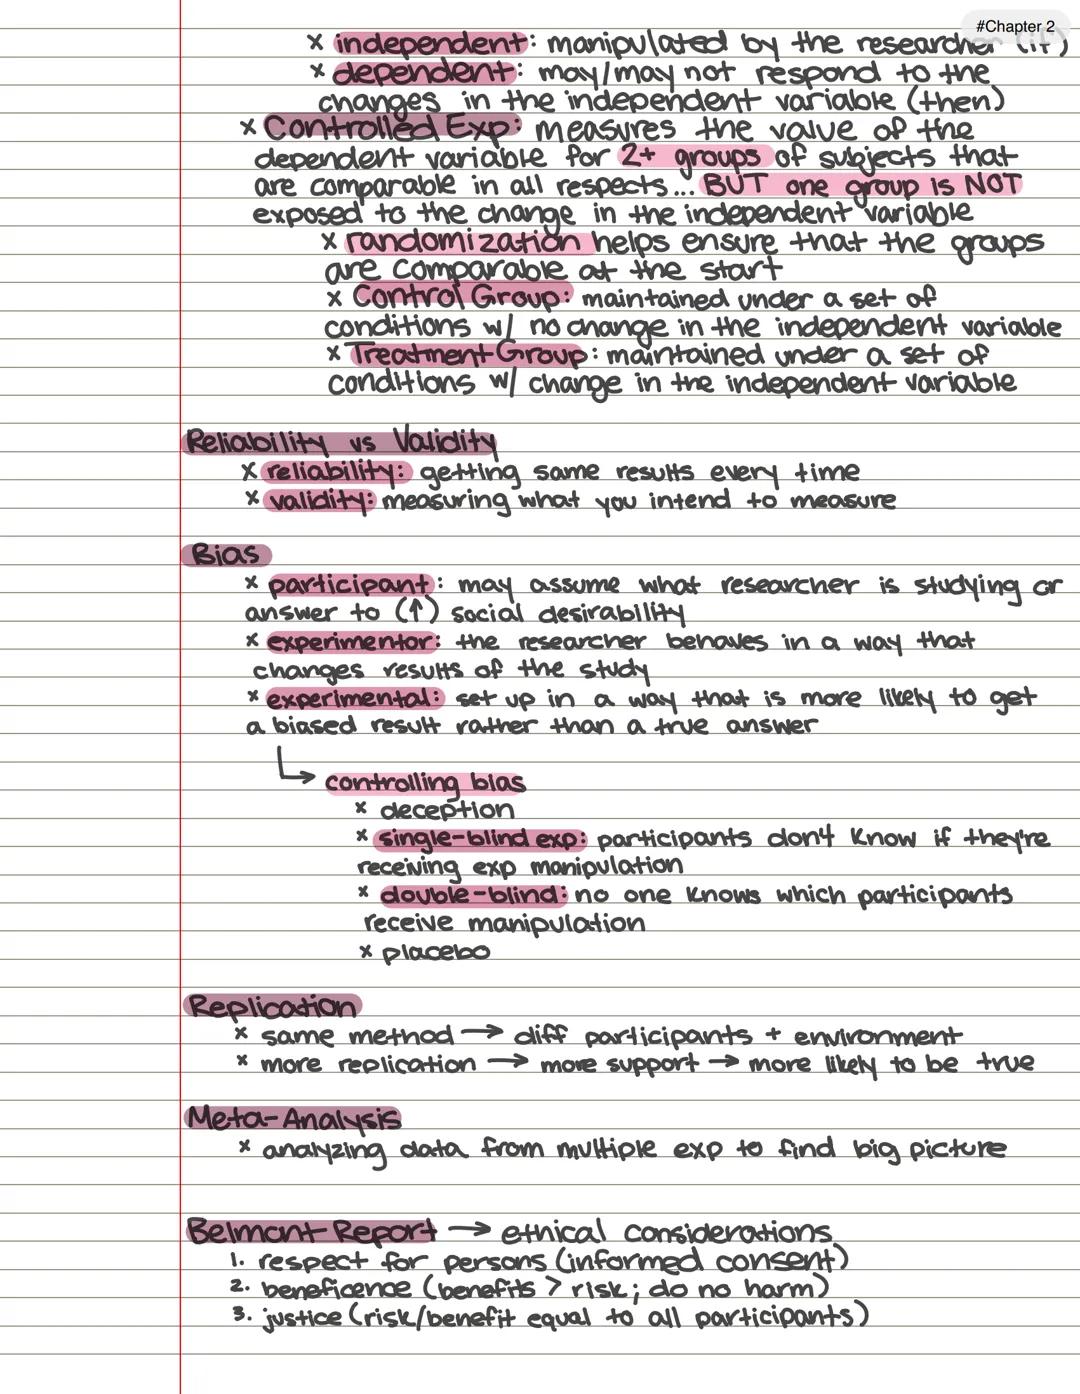 #Chapter 2
x independent: manipulated by the researcher (if)
x dependent: may/may not respond to the
changes in the independent variable (then)
x Controlled Exp: measures the value of the
dependent variable for 2+ groups of subjects that
are comparable in all respects... BUT one group is NOT
exposed to the change in the independent variable
x randomization helps ensure that the groups
are comparable at the start
x Control Group: maintained under a set of
conditions w/ no change in the independent variable
x Treatment Group: maintained under a set of
conditions w/ change in the independent variable
Reliability vs Validity
x reliability: getting same results every time
x validity: measuring what you intend to measure
Bias
x participant: may assume what researcher is studying or
answer to (↑) social desirability
x experimentor: the researcher behaves in a way that
changes results of the study
x experimental: set up in a way that is more likely to get
a biased result rather than a true answer
↳ controlling bias
x deception
x single-blind exp: participants don't know if they're
receiving exp manipulation
x double-blind: no one knows which participants
receive manipulation
x placebo
Replication
x same method → diff participants + environment
x more replication → more support → more likely to be true
Meta-Analysis
x analyzing data from multiple exp to find big picture
Belmont Report → ethical considerations
1. respect for persons (informed consent)
2. beneficence (benefits > risk; do no harm)
3. justice (risk/benefit equal to all participants)